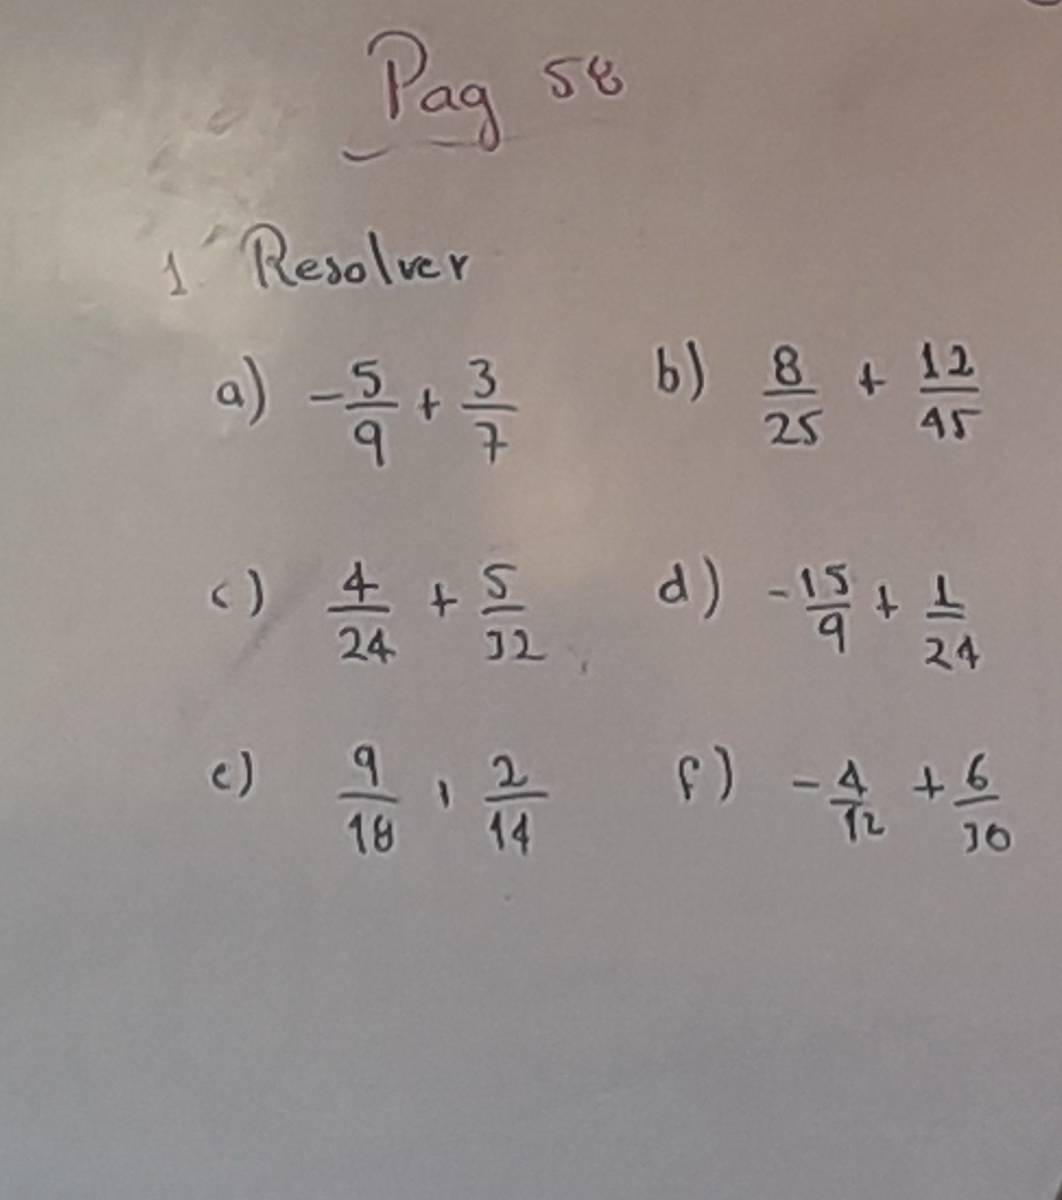 Pag 58
1. Resolver
a) -5/9 + 3/7 b) 8/25 + 12/45
c) 4/24 + 5/32 d) -15/9 + 1/24
e) 9/18 , 2/14 f) -4/12 + 6/30